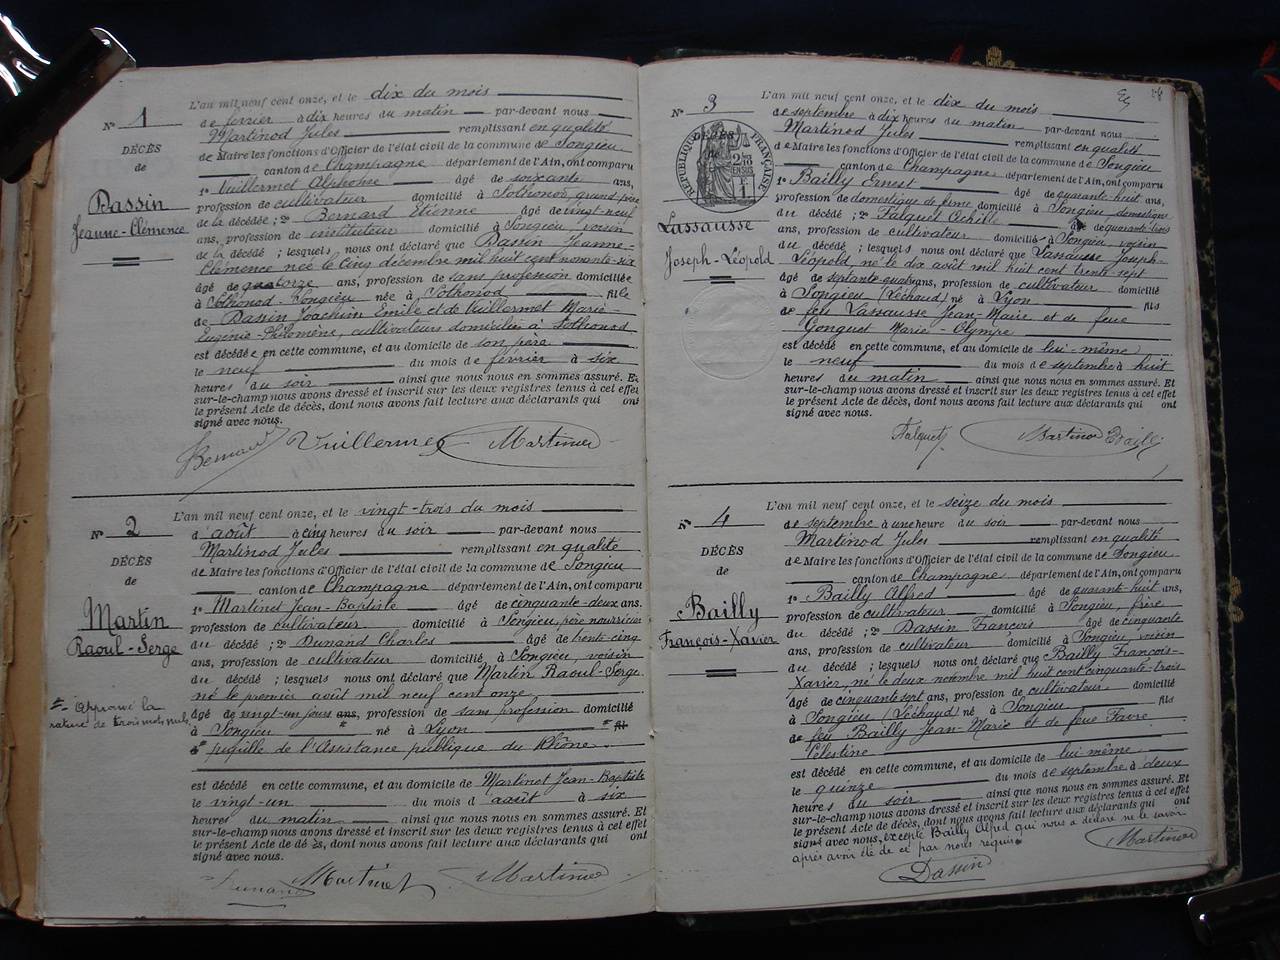 N° 1
DÉCÈS
de
Dassin
Jeanne-Clémence
L'an mil neuf cent onze, et le dix du mois
de février à dix heures du matin par-devant nous
Martinod Jules remplissant en qualité
de Maire les fonctions d'Officier de l'état civil de la commune de Songieu
canton de Champagne département de l'Ain, ont comparu
1° Vuillermet Alphonse âgé de soixante ans,
profession de cultivateur domicilié à Sothonod, grand-père
de la décédée; 2° Bernard Etienne âgé de vingt-neuf
ans, profession de instituteur domicilié à Songieu, voisin
de la décédée; lesquels nous ont déclaré que Dassin Jeanne-
Clémence née le cinq décembre mil huit cent nonante-six
âgé de quatorze ans, profession de sans profession domiciliée
à Sothonod-Songieu née à Sothonod fille
de Dassin Joachim Emile et de Vuillermet Marie-
Eugénie-Philomène, cultivateurs domiciliés à Sothonod
est décédée en cette commune, et au domicile de son père
le neuf du mois de février à six
heures du soir ainsi que nous nous en sommes assuré. Et
sur-le-champ nous avons dressé et inscrit sur les deux registres tenus à cet effet
le présent Acte de décès, dont nous avons fait lecture aux déclarants qui ont
signé avec nous.
Bernard Vuillermet Martinod
N° 2
DÉCÈS
de
Martin
Raoul-Serge
L'an mil neuf cent onze, et le vingt-trois du mois
d'août à cinq heures du soir par-devant nous
Martinod Jules remplissant en qualité
de Maire les fonctions d'Officier de l'état civil de la commune de Songieu
canton de Champagne département de l'Ain, ont comparu
1° Martinet Jean-Baptiste âgé de cinquante-deux ans,
profession de cultivateur domicilié à Songieu, père nourricier
du décédé; 2° Dunand Charles âgé de trente-cinq
ans, profession de cultivateur domicilié à Songieu, voisin
du décédé; lesquels nous ont déclaré que Martin Raoul-Serge
né le premier août mil neuf cent onze
âgé de vingt-un jours ans, profession de sans profession domicilié
à Songieu né à Lyon fil
de pupille de l'Assistance publique du Rhône
Approuvé la
rature de trois mots nuls
est décédé en cette commune, et au domicile de Martinet Jean-Baptiste
le vingt-un du mois d'août à six
heures du matin ainsi que nous nous en sommes assuré. Et
sur-le-champ nous avons dressé et inscrit sur les deux registres tenus à cet effet
le présent Acte de décès, dont nous avons fait lecture aux déclarants qui ont
signé avec nous.
Dunand Martinet Martinod
N° 3
DÉCÈS
de
RÉPUBLIQUE FRANÇAISE
Lassausse
Joseph-Léopold
L'an mil neuf cent onze, et le dix du mois
de septembre à dix heures du matin par-devant nous
Martinod Jules remplissant en qualité
de Maire les fonctions d'Officier de l'état civil de la commune de Songieu
canton de Champagne département de l'Ain, ont comparu
1° Bailly Ernest âgé de quarante-huit ans,
profession de domestique de ferme domicilié à Songieu, domestique
du décédé; 2° Falquet Achille âgé de quarante-trois
ans, profession de cultivateur domicilié à Songieu, voisin
du décédé; lesquels nous ont déclaré que Lassausse Joseph-
Léopold né le dix août mil huit cent trente-sept
âgé de septante-quatre ans, profession de cultivateur domicilié
à Songieu (Léchaud) né à Lyon fils
de feu Lassausse Jean-Marie et de feue
Gonguet Marie-Olympe
est décédé en cette commune, et au domicile de lui-même
le neuf du mois de septembre à huit
heures du matin ainsi que nous nous en sommes assuré. Et
sur-le-champ nous avons dressé et inscrit sur les deux registres tenus à cet effet
le présent Acte de décès, dont nous avons fait lecture aux déclarants qui ont
signé avec nous.
Falquet Martinod Bailly
N° 4
DÉCÈS
de
Bailly
François-Xavier
L'an mil neuf cent onze, et le seize du mois
de septembre à une heure du soir par-devant nous
Martinod Jules remplissant en qualité
de Maire les fonctions d'Officier de l'état civil de la commune de Songieu
canton de Champagne département de l'Ain, ont comparu
1° Bailly Alfred âgé de quarante-huit ans,
profession de cultivateur domicilié à Songieu, frère
du décédé; 2° Dassin François âgé de cinquante
ans, profession de cultivateur domicilié à Songieu, voisin
du décédé; lesquels nous ont déclaré que Bailly François-
Xavier, né le deux novembre mil huit cent cinquante-trois
âgé de cinquante-sept ans, profession de cultivateur domicilié
à Songieu (Léchaud) né à Songieu fils
de feu Bailly Jean-Marie et de feue Favre
Célestine
est décédé en cette commune, et au domicile de lui-même
le quinze du mois de septembre à deux
heures du soir ainsi que nous nous en sommes assuré. Et
sur-le-champ nous avons dressé et inscrit sur les deux registres tenus à cet effet
le présent Acte de décès, dont nous avons fait lecture aux déclarants qui ont
signé avec nous, excepté Bailly Alfred qui nous a déclaré ne le savoir
après avoir été de ce par nous requis.
Dassin Martinod